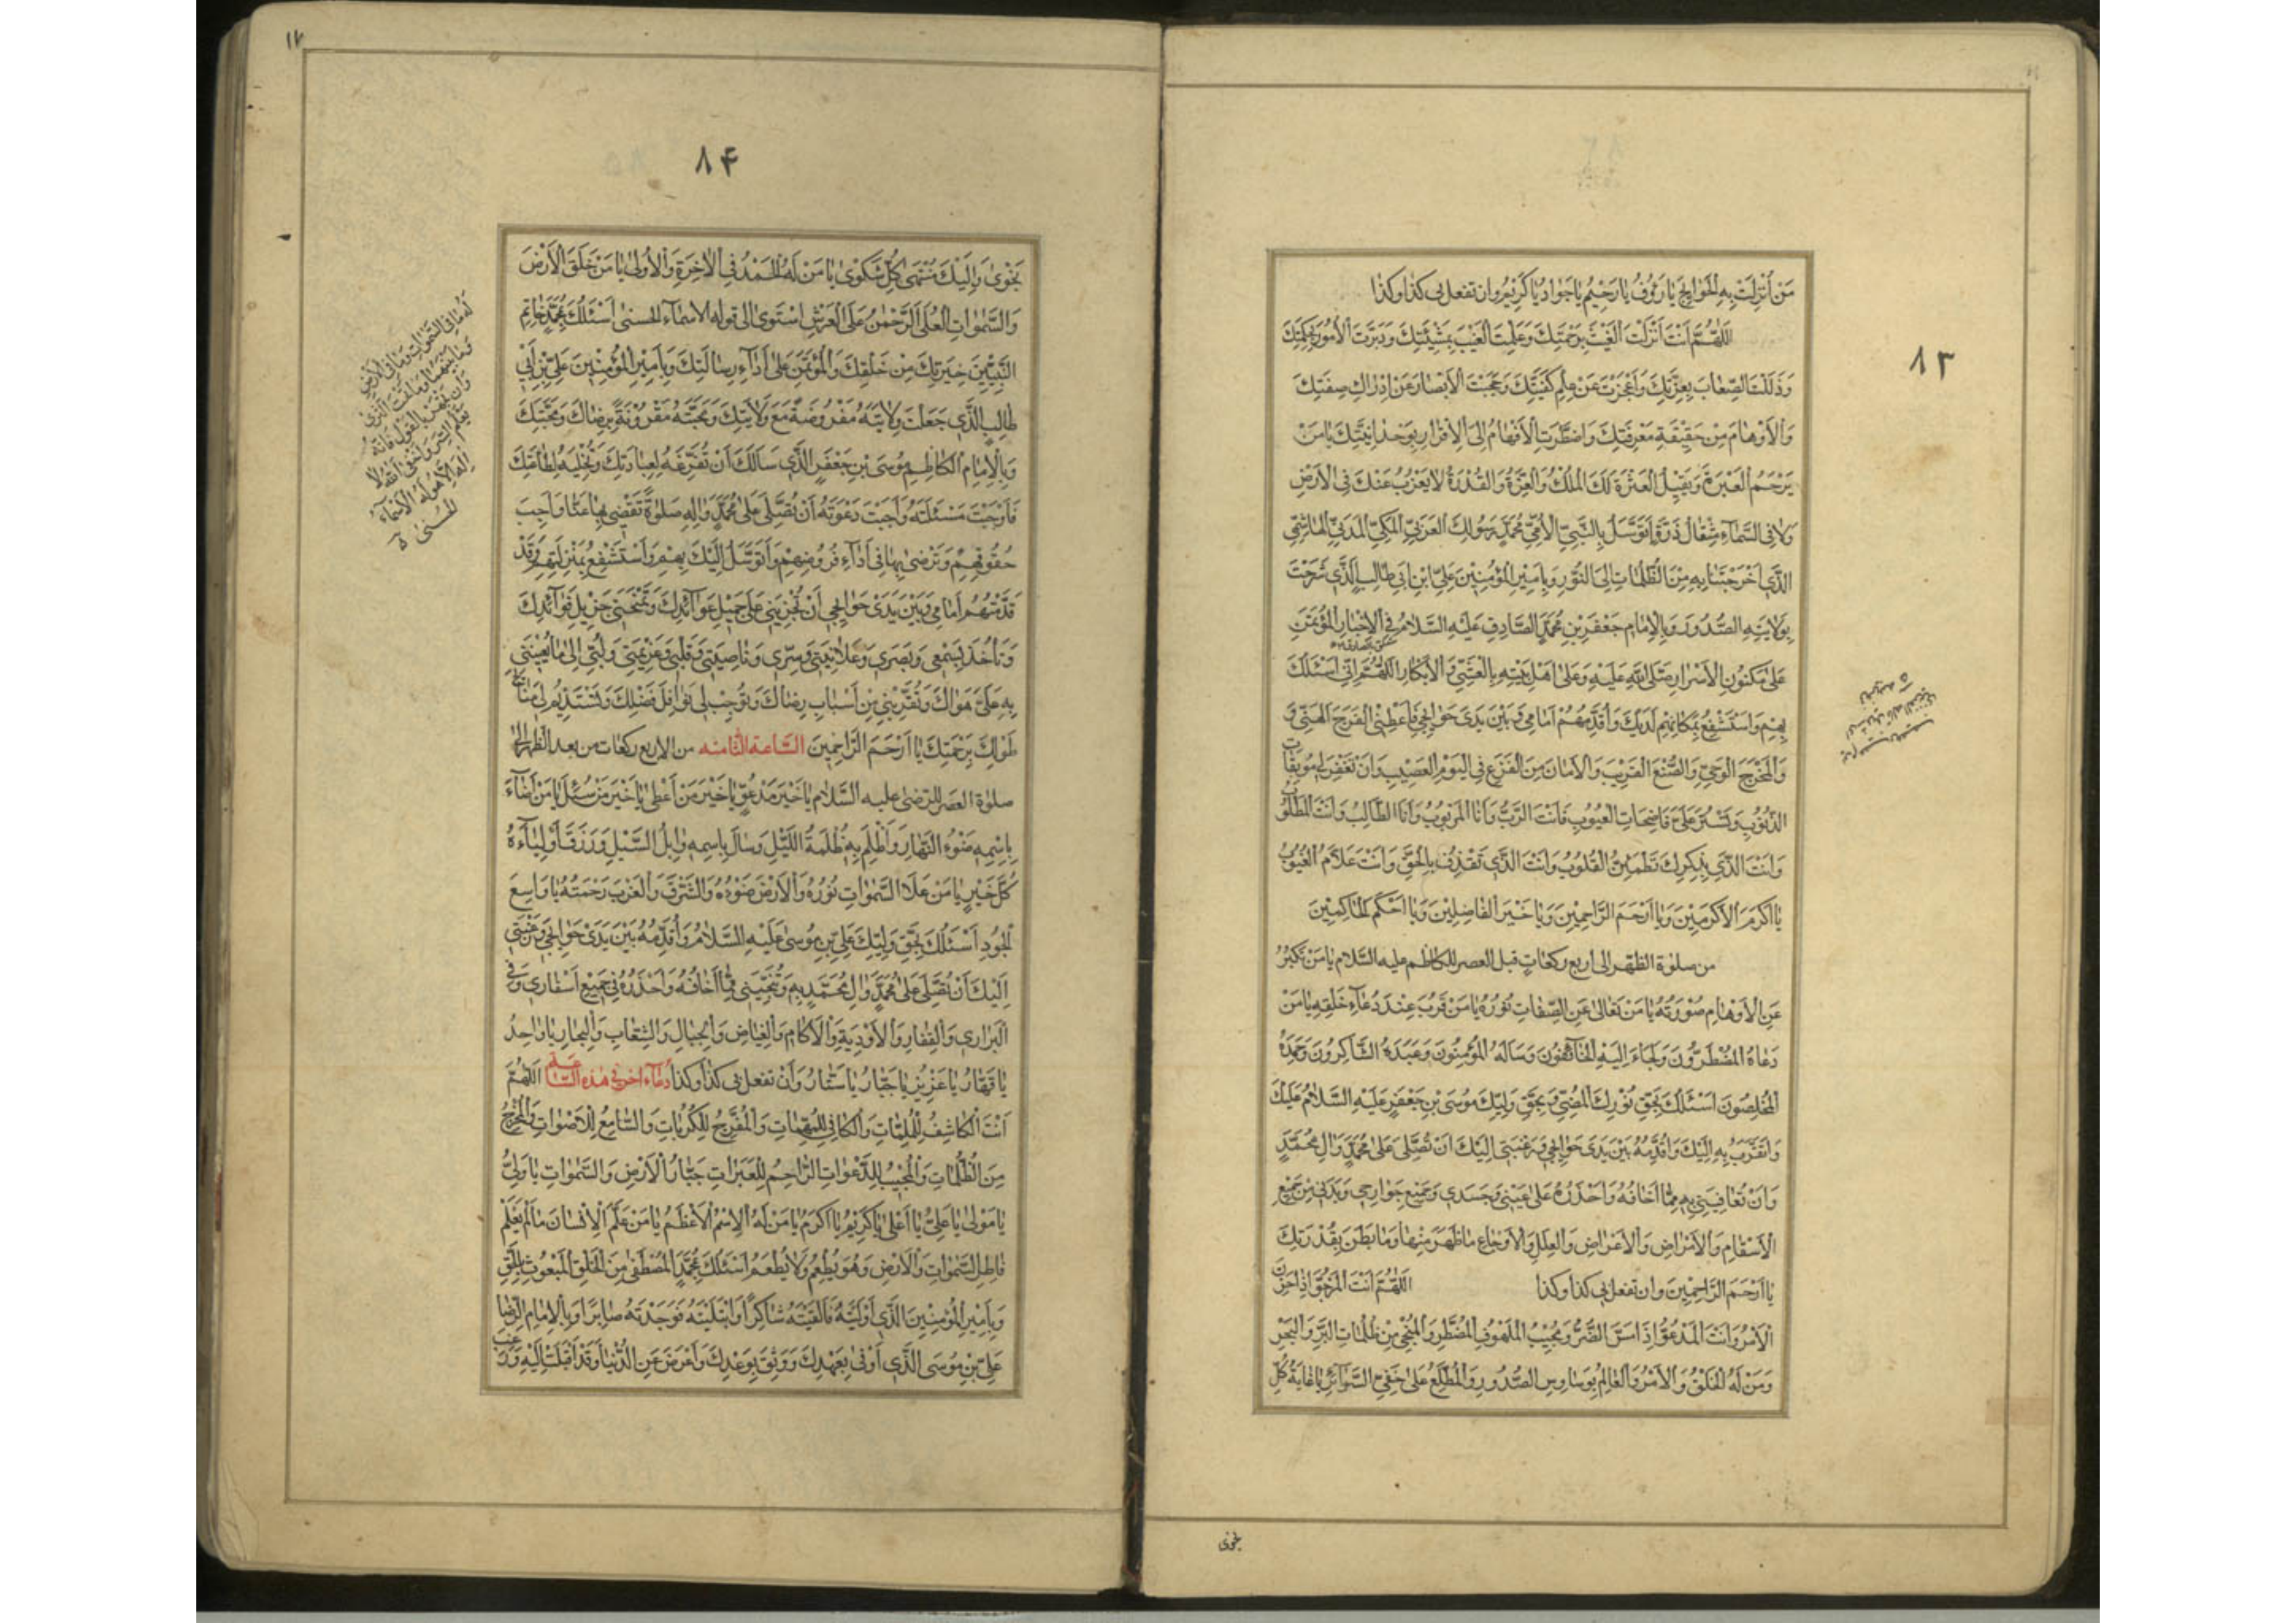 ٨٣
مَنْ أُنْزِلَتْ بِهِ الْحَوَائِجُ يَا رَؤُفُ يَا رَحِيمُ يَا جَوَادُ يَا كَرِيمُ وان تفعل بى كذا وكذا
اَللّٰهُمَّ أَنْتَ أَنْزَلْتَ الْغَيْثَ بِرَحْمَتِكَ وَعَلِمْتَ الْغَيْبَ بِمَشِيَّتِكَ وَدَبَّرْتَ الْأُمُورَ بِحِكْمَتِكَ
وَذَلَّلْتَ الصِّعَابَ بِعِزَّتِكَ وَأَعْجَزْتَ عَنْ عِلْمِ كَيْفِيَّتِكَ وَحَجَبْتَ الْأَبْصَارَ عَنْ إِدْرَاكِ صِفَتِكَ
وَالْأَوْهَامَ مِنْ حَقِيقَةِ مَعْرِفَتِكَ وَاضْطَرَرْتَ الْأَفْهَامُ إِلَى الْإِقْرَارِ بِوَحْدَانِيَّتِكَ يَا مَنْ
يَرْحَمُ الْعَبْرَةَ وَيَقْبَلُ الْعَثْرَةَ لَكَ الْمُلْكُ وَالْعِزَّةُ وَالْقُدْرَةُ لَا يَعْزُبُ عَنْكَ فِى الْأَرْضِ
وَلَا فِى السَّمَاءِ مِثْقَالُ ذَرَّةٍ أَتَوَسَّلُ بِالنَّبِيِّ الْأُمِّيِّ مُحَمَّدٍ رَسُولِكَ الْعَرَبِيِّ الْمَكِّيِّ الْمَدَنِيِّ الْهَاشِمِيِّ
الَّذِي أَخْرَجْتَنَا بِهِ مِنَ الظُّلُمَاتِ إِلَى النُّورِ وَبِأَمِيرِ الْمُؤْمِنِينَ عَلِيِّ ابْنِ أَبِي طَالِبٍ الَّذِي شَرَحْتَ
بِوَلَايَتِهِ الصُّدُورَ وَبِالْإِمَامِ جَعْفَرِ بْنِ مُحَمَّدٍ الصَّادِقِ عَلَيْهِ السَّلَامُ فِى الْأَخْبَارِ الْمُؤْتَمَنِ
عَلَى مَكْنُونِ الْأَسْرَارِ صَلَّى اللهُ عَلَيْهِ وَعَلَى أَهْلِ بَيْتِهِ بِالْعَشِيِّ وَالْأَبْكَارِ اَللّٰهُمَّ إِنِّي أَسْئَلُكَ
بِهِمْ وَأَسْتَشْفِعُ بِمَكَانِهِمْ لَدَيْكَ وَأُقَدِّمُهُمْ أَمَامِي وَبَيْنَ يَدَيْ حَوَائِجِي فَأَعْطِنِي الْفَرَجَ الْهَنِيَّ
وَالْمَخْرَجَ الْوَحِيَّ وَالصُّنْعَ الْقَرِيبَ وَالْأَمَانَ مِنَ الْفَزَعِ فِى الْيَوْمِ الْعَصِيبِ وَأَنْ تَغْفِرَ لِي مُوبِقَاتِ
الذُّنُوبِ وَتَسْتُرَ عَلَيَّ فَاضِحَاتِ الْعُيُوبِ فَأَنْتَ الرَّبُّ وَأَنَا الْمَرْبُوبُ وَأَنَا الطَّالِبُ وَأَنْتَ الْمَطْلُوبُ
وَأَنْتَ الَّذِي بِذِكْرِكَ تَطْمَئِنُّ الْقُلُوبُ وَأَنْتَ الَّذِي تَقْذِفُ بِالْحَقِّ وَأَنْتَ عَلَّامُ الْغُيُوبِ
يَا أَكْرَمَ الْأَكْرَمِينَ وَيَا أَرْحَمَ الرَّاحِمِينَ وَيَا خَيْرَ الْفَاصِلِينَ وَيَا أَحْكَمَ الْحَاكِمِينَ
من صلوٰة الظهر الى اربع ركعات قبل العصر للكاظم عليه السّلام يَا مَنْ تَكَبَّرَ
عَنِ الْأَوْهَامِ صُوْرَتُهُ يَا مَنْ تَعَالَى عَنِ الصِّفَاتِ نُوْرُهُ يَا مَنْ قَرُبَ عِنْدَ دُعَاءِ خَلْقِهِ يَا مَنْ
دَعَاهُ الْمُضْطَرُّونَ وَلَجَأَ إِلَيْهِ الْخَائِفُونَ وَسَأَلَهُ الْمُؤْمِنُونَ وَعَبَدَهُ الشَّاكِرُونَ وَحَمِدَهُ
الْمُخْلِصُونَ أَسْئَلُكَ بِحَقِّ نُوْرِكَ الْمُضِيِّ وَبِحَقِّ وَلِيِّكَ مُوسَى بْنِ جَعْفَرٍ عَلَيْهِ السَّلَامُ عَلَيْكَ
وَأَتَقَرَّبُ بِهِ إِلَيْكَ وَأُقَدِّمُهُ بَيْنَ يَدَيْ حَوَائِجِي وَرَغْبَتِي إِلَيْكَ أَنْ تُصَلِّيَ عَلَى مُحَمَّدٍ وَآلِ مُحَمَّدٍ
وَأَنْ تُعَافِيَنِي بِهِ مِمَّا أَخَافُهُ وَأَحْذَرُهُ عَلَى عَيْنِي وَجَسَدِي وَجَمِيعِ جَوَارِحِي وَبَدَنِي مِنْ جَمِيعِ
الْأَسْقَامِ وَالْأَمْرَاضِ وَالْأَعْرَاضِ وَالْعِلَلِ وَالْأَوْجَاعِ مَا ظَهَرَ مِنْهَا وَمَا بَطَنَ بِقُدْرَتِكَ
يَا أَرْحَمَ الرَّاحِمِينَ وان تفعل بى كذا وكذا اَللّٰهُمَّ أَنْتَ الْمَرْجُوُّ إِذَا حَزَنَ
الْأَمْرُ وَأَنْتَ الْمَدْعُوُّ إِذَا مَسَّ الضُّرُّ وَمُجِيبُ الْمَلْهُوفِ الْمُضْطَرِّ وَالْمُنْجِي مِنْ ظُلُمَاتِ الْبَرِّ وَالْبَحْرِ
وَمَنْ لَهُ الْخَلْقُ وَالْأَمْرُ وَالْعَالِمُ بِوَسَاوِسِ الصُّدُورِ وَالْمُطَّلِعُ عَلَى خَفِيِّ السَّرَائِرِ يَا غَايَةَ كُلِّ
نجوى
١٧
٨۴
نَجْوَى وَإِلَيْكَ مُنْتَهَى كُلِّ شَكْوَى يَا مَنْ لَهُ الْحَمْدُ فِي الْآخِرَةِ وَالْأُولَى يَا مَنْ خَلَقَ الْأَرْضَ
وَالسَّمٰوَاتِ الْعُلَى الرَّحْمٰنُ عَلَى الْعَرْشِ اسْتَوَى الى قوله الاسماء الحسنى أَسْئَلُكَ بِمُحَمَّدٍ خَاتَمِ
النَّبِيِّينَ خِيَرَتِكَ مِنْ خَلْقِكَ وَالْمُؤْتَمَنِ عَلَى أَدَاءِ رِسَالَتِكَ وَبِأَمِيرِ الْمُؤْمِنِينَ عَلِيِّ بْنِ أَبِي
طَالِبٍ الَّذِي جَعَلْتَ وِلَايَتَهُ مَفْرُوضَةً مَعَ وَلَايَتِكَ وَمَحَبَّتَهُ مَقْرُونَةً بِرِضَاكَ وَمَحَبَّتِكَ
وَبِالْإِمَامِ الْكَاظِمِ مُوسَى بْنِ جَعْفَرٍ الَّذِي سَأَلَكَ أَنْ تُفَرِّغَهُ لِعِبَادَتِكَ وَتُخْلِيَهُ لِطَاعَتِكَ
فَأَوْجَبْتَ مَسْئَلَتَهُ وَأَجَبْتَ دَعْوَتَهُ أَنْ تُصَلِّيَ عَلَى مُحَمَّدٍ وَآلِهِ صَلٰوةً تَقْضِي بِهَا عَنَّا وَاجِبَ
حُقُوقِهِمْ وَتَرْضَى بِهَا فِي أَدَاءِ فُرُوضِهِمْ وَأَتَوَسَّلُ إِلَيْكَ بِهِمْ وَأَسْتَشْفِعُ بِمَنْزِلَتِهِمْ وَقَدْ
قَدَّمْتُهُمْ أَمَامِي وَبَيْنَ يَدَيْ حَوَائِجِي أَنْ تُجْرِيَنِي عَلَى جَمِيلِ عَوَائِدِكَ وَتَمْنَحَنِي جَزِيلَ فَوَائِدِكَ
وَتَأْخُذَ بِسَمْعِي وَبَصَرِي وَعَلَانِيَتِي وَسِرِّي وَنَاصِيَتِي وَقَلْبِي وَعَزِيمَتِي وَلُبِّي إِلَى مَا تُعِينُنِي
بِهِ عَلَى هَوَاكَ وَتُقَرِّبُنِي مِنْ أَسْبَابِ رِضَاكَ وَتُوجِبُ لِي نَوَافِلَ فَضْلِكَ وَتَسْتَدِيمُ لِي مَنَائِحَ
طَوْلِكَ بِرَحْمَتِكَ يَا أَرْحَمَ الرَّاحِمِينَ السّاعة الثّامنه من الاربع ركعات من بعد الظهر الى
صلوٰة العصر للرّضى عليه السَّلَام يَا خَيْرَ مَدْعُوٍّ يَا خَيْرَ مَنْ أَعْطَى يَا خَيْرَ مَنْ سُئِلَ يَا مَنْ أَضَاءَ
بِاسْمِهِ ضَوْءُ النَّهَارِ وَأَظْلَمَ بِهِ ظُلْمَةُ اللَّيْلِ وَسَالَ بِاسْمِهِ وَابِلُ السَّيْلِ وَرَزَقَ أَوْلِيَاءَهُ
كُلَّ خَيْرٍ يَا مَنْ عَلَا السَّمٰوَاتِ نُورُهُ وَالْأَرْضَ ضَوْءُهُ وَالشَّرْقَ وَالْغَرْبَ رَحْمَتُهُ يَا وَاسِعَ
الْجُودِ أَسْئَلُكَ بِحَقِّ وَلِيِّكَ عَلِيِّ بْنِ مُوسَى عَلَيْهِ السَّلَامُ وَأُقَدِّمُهُ بَيْنَ يَدَيْ حَوَائِجِي وَرَغْبَتِي
إِلَيْكَ أَنْ تُصَلِّيَ عَلَى مُحَمَّدٍ وَآلِ مُحَمَّدٍ وَتُنَجِّيَنِي بِهِ مِمَّا أَخَافُهُ وَأَحْذَرُهُ فِي جَمِيعِ أَسْفَارِي وَفِي
الْبَرَارِي وَالْقِفَارِ وَالْأَوْدِيَةِ وَالْآكَامِ وَالْغِيَاضِ وَالْجِبَالِ وَالشِّعَابِ وَالْبِحَارِ يَا وَاحِدُ
يَا قَهَّارُ يَا عَزِيزُ يَا جَبَّارُ يَا سَتَّارُ وَأَنْ تفعل بى كذا وكذا دعاء آخر فى هذه السّاعة اَللّٰهُمَّ
أَنْتَ الْكَاشِفُ لِلْمُلِمَّاتِ وَالْكَافِي لِلْمُهِمَّاتِ وَالْمُفَرِّجُ لِلْكُرُبَاتِ وَالسَّامِعُ لِلْأَصْوَاتِ وَالْمُخْرِجُ
مِنَ الظُّلُمَاتِ وَالْمُجِيبُ لِلدَّعَوَاتِ الرَّاحِمُ لِلْعَبَرَاتِ جَبَّارُ الْأَرْضِ وَالسَّمٰوَاتِ يَا وَلِيُّ
يَا مَوْلَى يَا عَلِيُّ يَا أَعْلَى يَا كَرِيمُ يَا أَكْرَمُ يَا مَنْ لَهُ الْاِسْمُ الْأَعْظَمُ يَا مَنْ عَلَّمَ الْإِنْسَانَ مَا لَمْ يَعْلَمْ
فَاطِرَ السَّمٰوَاتِ وَالْأَرْضِ وَهُوَ يُطْعِمُ وَلَا يُطْعَمُ أَسْئَلُكَ بِمُحَمَّدٍ الْمُصْطَفَى مِنَ الْخَلْقِ الْمَبْعُوثِ بِالْحَقِّ
وَبِأَمِيرِ الْمُؤْمِنِينَ الَّذِي أَوْلَيْتَهُ فَأَلْفَيْتَهُ شَاكِرًا وَابْتَلَيْتَهُ فَوَجَدْتَهُ صَابِرًا وَبِالْإِمَامِ الرِّضَا
عَلِيِّ بْنِ مُوسَى الَّذِي أَوْفَى بِعَهْدِكَ وَوَثِقَ بِوَعْدِكَ وَأَعْرَضَ عَنِ الدُّنْيَا وَقَدْ أَقْبَلَتْ إِلَيْهِ وَرَغِبَ
لَهُ مَا فِي السَّمٰوَاتِ وَمَا فِي الْأَرْضِ
وَمَا بَيْنَهُمَا وَمَا تَحْتَ الثَّرَى
وَإِنْ تَجْهَرْ بِالْقَوْلِ فَإِنَّهُ
يَعْلَمُ السِّرَّ وَأَخْفَى اَللهُ لَا
إِلٰهَ إِلَّا هُوَ لَهُ الْأَسْمَاءُ
الْحُسْنَى